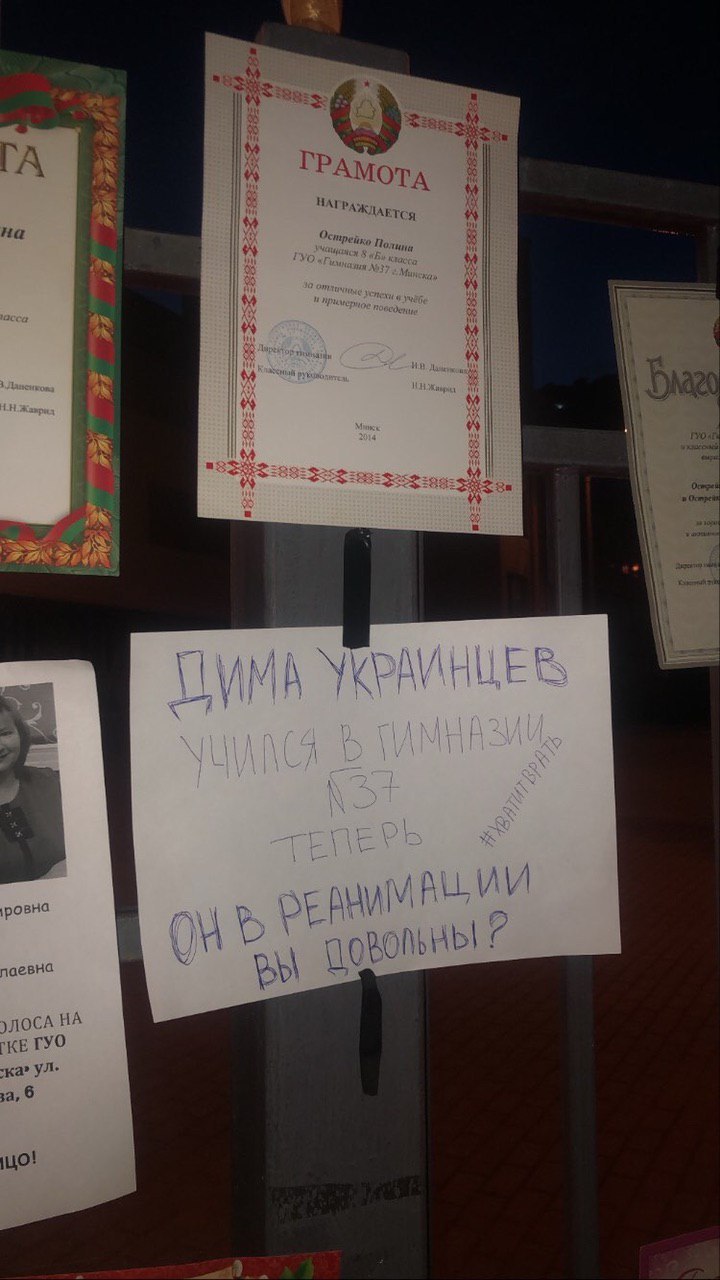 ТА
на
ласса
В.Даненкова
Н.Н.Жаврид
ГРАМОТА
НАГРАЖДАЕТСЯ
Острейко Полина
учащаяся 8 «Б» класса
ГУО «Гимназия №37 г.Минска»
за отличные успехи в учёбе
и примерное поведение
Директор гимназии
И.В. Даненкова
Классный руководитель
Н.Н.Жаврид
Минск
2014
Благо
ГУО «Ги
и классный
выра
Острей
и Острейк
Директор гимна
Классный руко
ДИМА УКРАИНЦЕВ
УЧИЛСЯ В ГИМНАЗИИ
№37
ТЕПЕРЬ
#ХВАТИТВРАТЬ
ОН В РЕАНИМАЦИИ
ВЫ ДОВОЛЬНЫ?
ировна
лаевна
ОЛОСА НА
ТКЕ ГУО
ска» ул.
ва, 6
ИЦО!